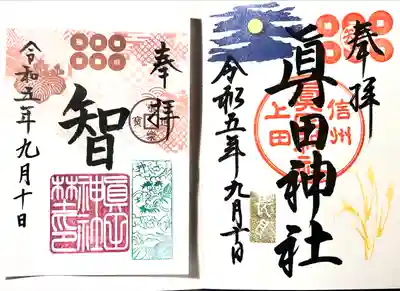 奉拝
智
眞田神社禁印
令和五年九月十日
奉拝
眞田神社
信州
上田
令和五年九月十日
長月